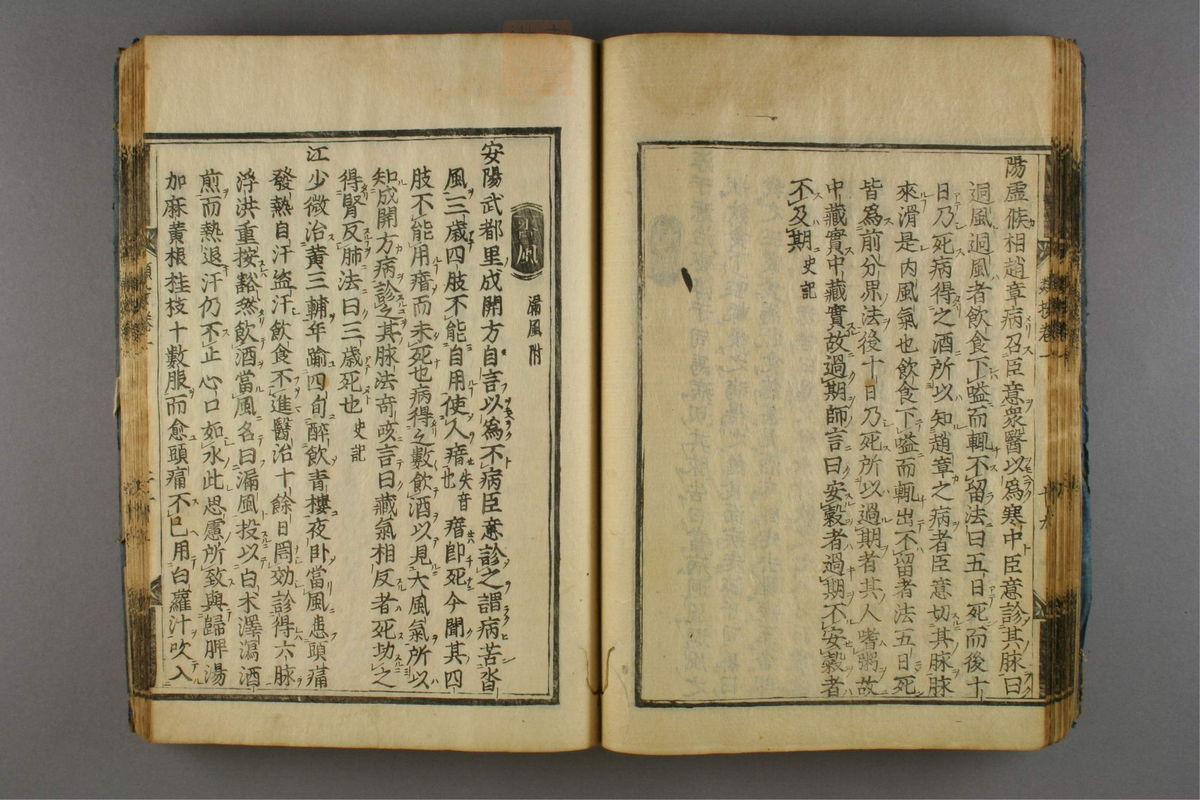 陽虛候相趙章病召臣意衆醫以爲寒中臣意診其脉曰
迵風迵風者飲食下嗌而輒不留法曰五日死而後十
日乃死病得之酒所以知趙章之病者臣意切其脉脉
來滑是内風氣也飲食下嗌而輒出不留者法五日死
皆爲前分界法後十日乃死所以過期者其人嗜粥故
中藏實中藏實故過期師言曰安穀者過期不安穀者
不及期 史記
漏風附
安陽武都里成開方自言以爲不病臣意診之謂病苦沓
風三歳四肢不能自用使人瘖也 失音 瘖即死今聞其四
肢不能用瘖而未死也病得之數飲酒以見大風氣所以
知成開方病診之其脉法奇咳言曰藏氣相反者死切之
得腎反肺法曰三歳死也 史記
江少微治黄三輔年踰四旬醉飲青樓夜卧當風患頭痛
發熱自汗盗汗飲食不進醫治十餘日罔効診得六脉
浮洪重按豁然飲酒當風名曰漏風投以白术澤瀉酒
煎而熱退汗仍不止心口如氷此思慮所致與歸脾湯
加麻黄根桂枝十數服而愈頭痛不已用白羅汁吹入